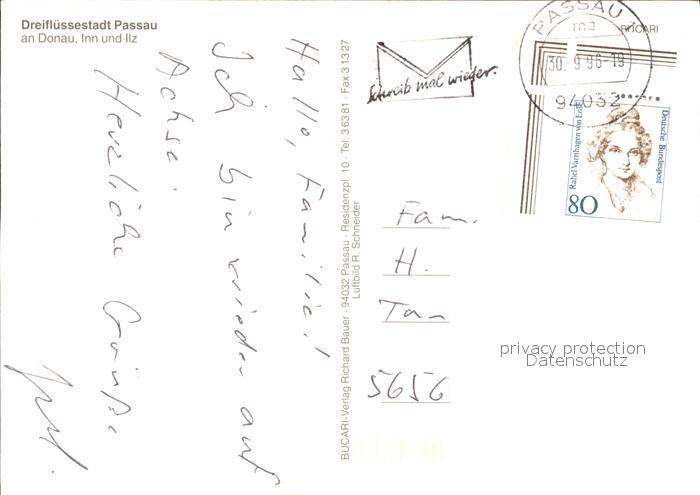 Dreiflüssestadt Passau
an Donau, Inn und Ilz
Hallo, Familie!
Ich bin wieder auf
Achse.
Herzliche Grüße
BUCARI-Verlag Richard Bauer · 94032 Passau · Residenzpl. 10 · Tel. 3 63 81 · Fax 3 13 27
Luftbild R. Schneider
Schreib mal wieder.
PASSAU
ma
30.-9.96-19
94032
BUCARI
Rahel Varnhagen von Ense
Deutsche Bundespost
80
Fam.
H.
Tan
5656
privacy protection
Datenschutz